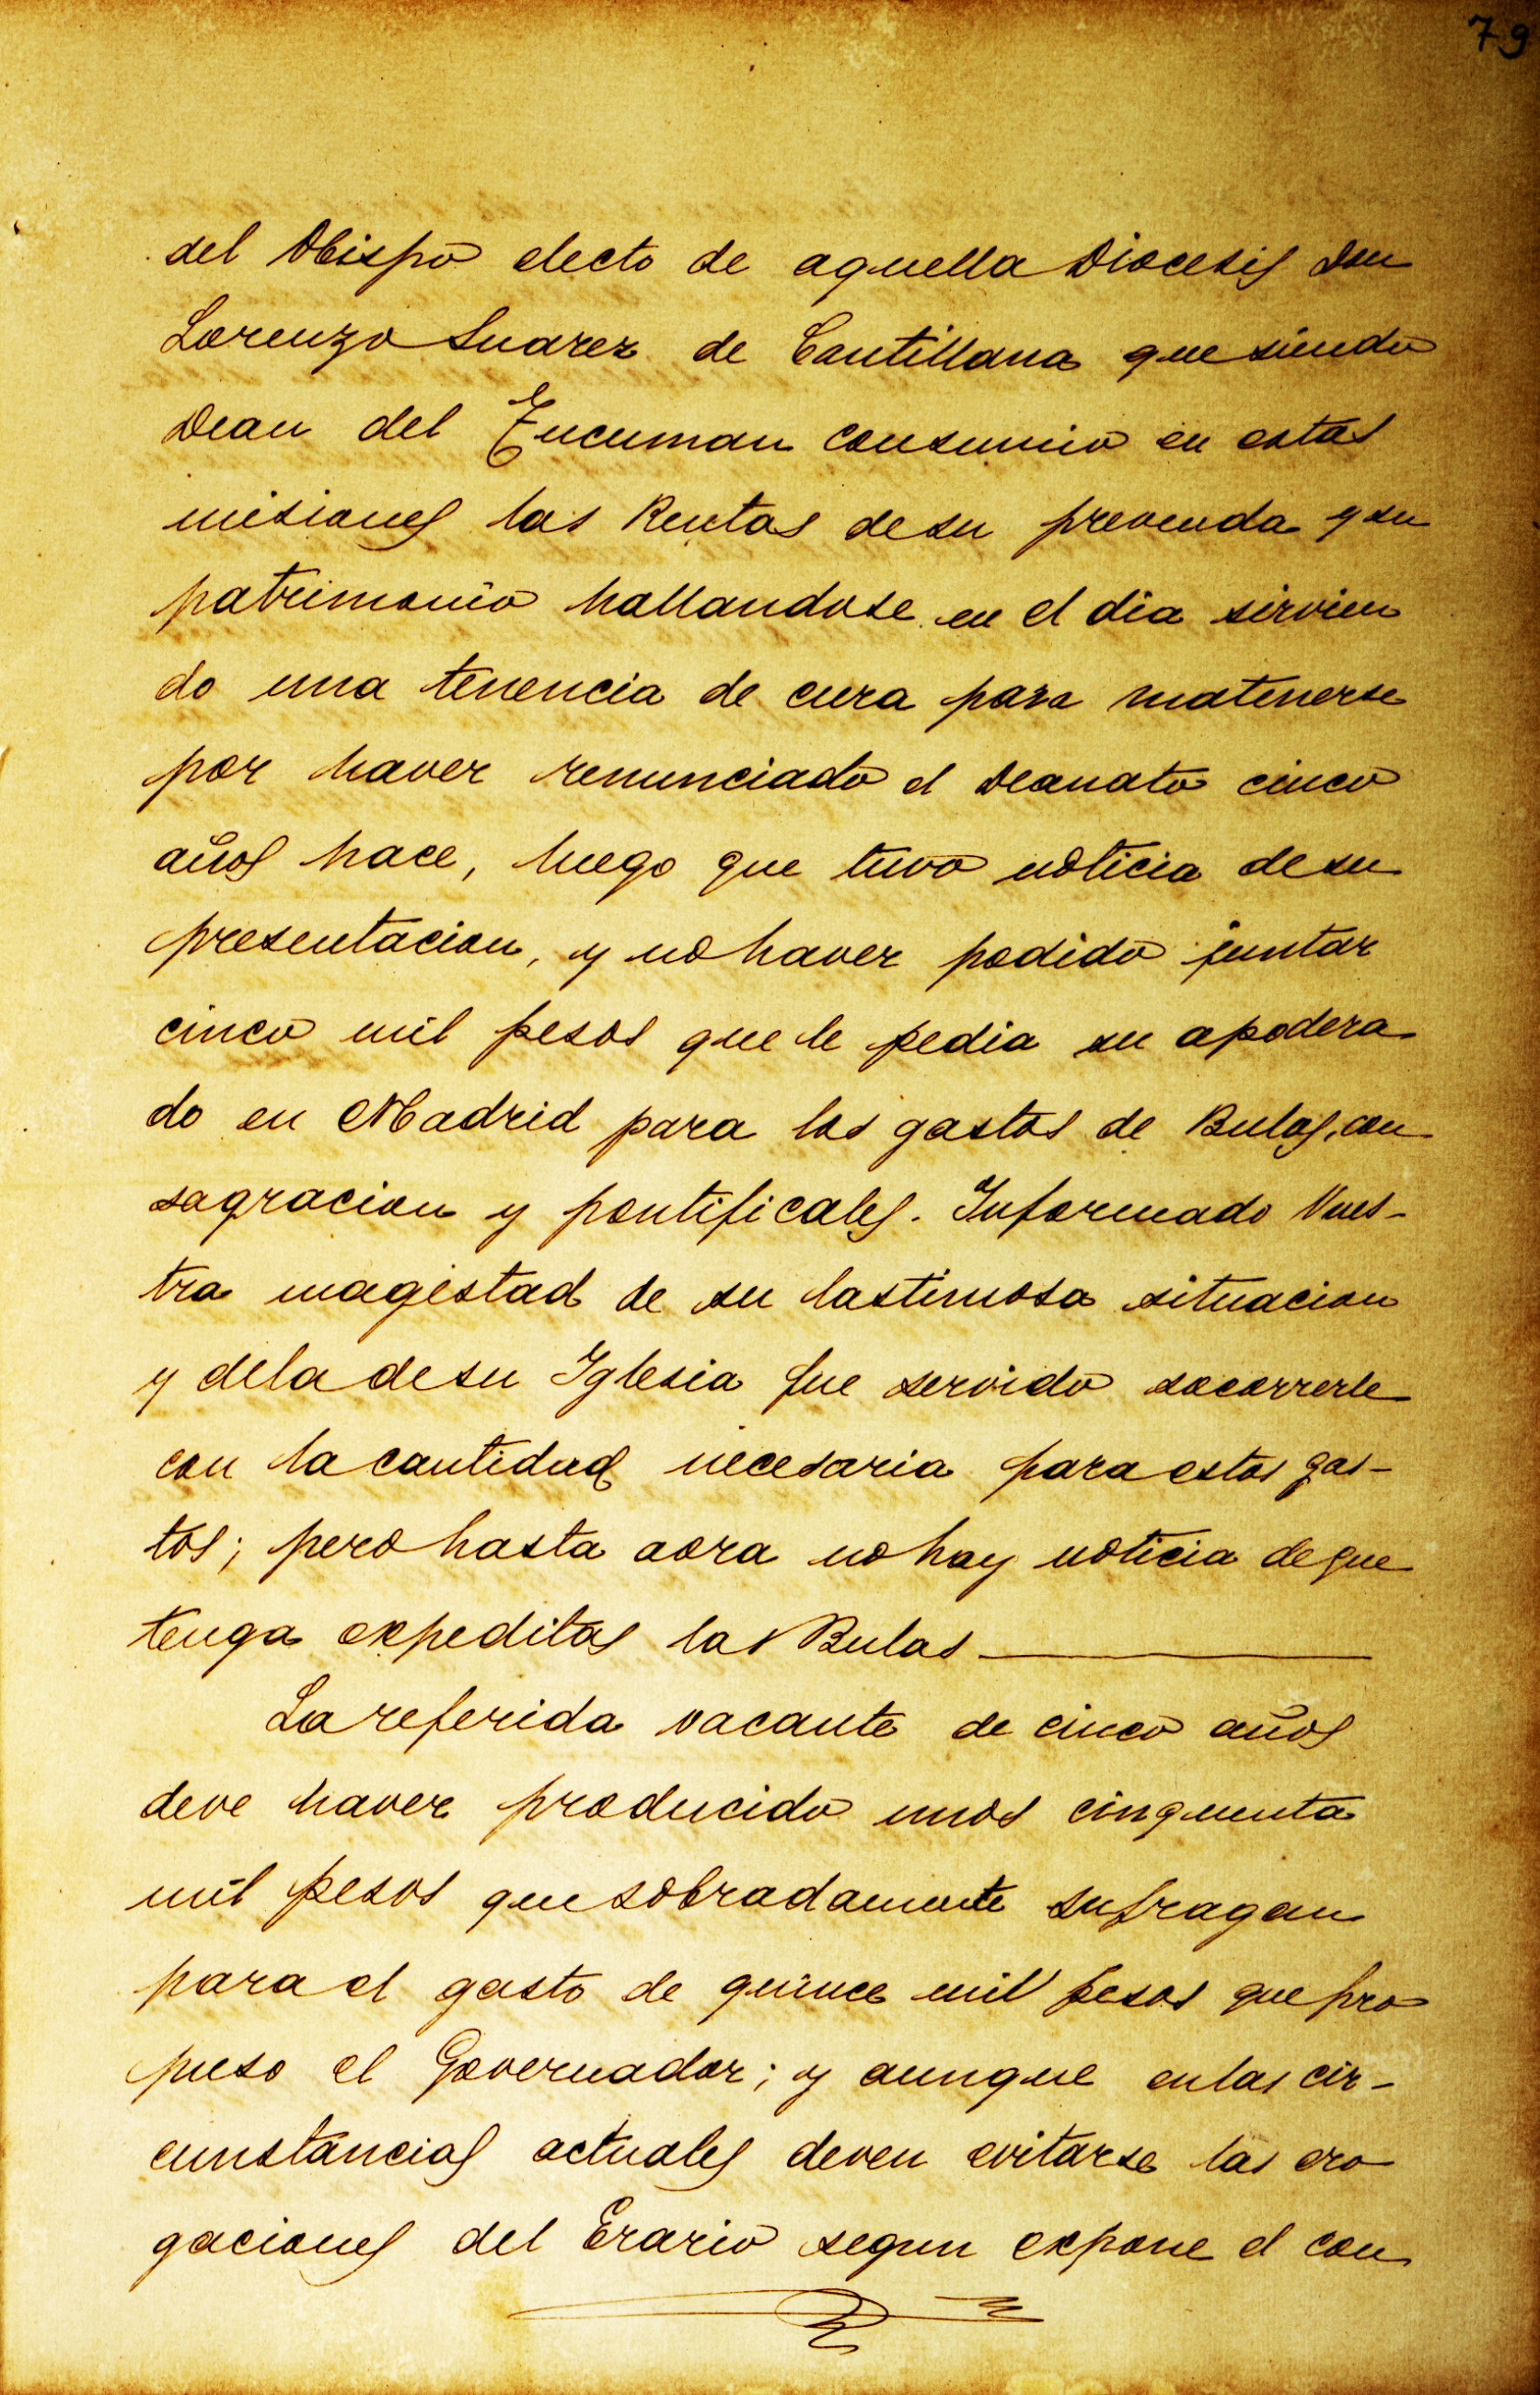 79
del Obispo electo de aquella Diocesis Don
Lorenzo Suarez de Cantillana que siendo
Dean del Tucuman consumio en estas
misiones las Rentas de su prevenda y su
patrimonio hallandose en el dia sirvien
do una tenencia de cura para matenerse
por haver renunciado el Deanato cinco
años hace, luego que tuvo noticia de su
presentacion, y no haver podido juntar
cinco mil pesos que le pedia su apodera
do en Madrid para los gastos de Bulas, con
sagracion y pontificales. Informado Vues-
tra magestad de su lastimosa situacion
y dela de su Iglesia fue servido socorrerle
con la cantidad necesaria para estos gas-
tos; pero hasta aora no hay noticia de que
tenga expeditas las Bulas
La referida vacante de cinco años
deve haver producido unos cinquenta
mil pesos que sobradamente sufragan
para el gasto de quince mil pesos que pro
puso el Governador; y aunque en las cir-
cunstancias actuales deven evitarse las ero
gaciones del Erario segun expone el con